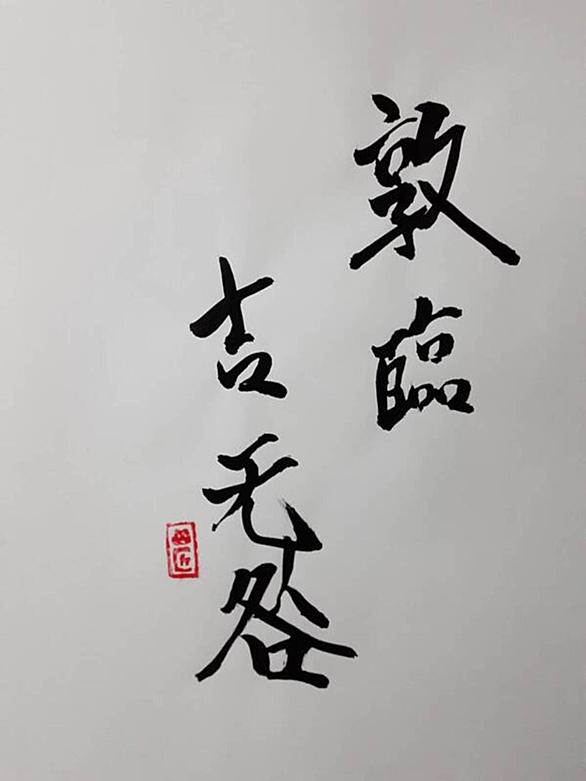 敦臨
吉无咎